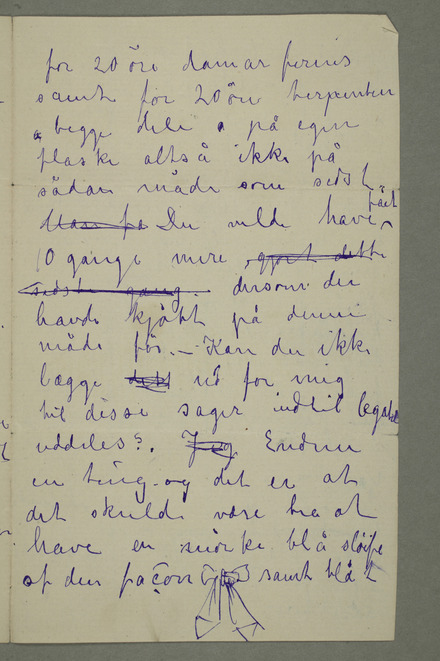 for 20 öre damar fernis
samt for 20 öre terpentin
begge dele på egen
flaske altså ikke på
sådan måde som sidst
Du vilde have fået
10 gange mere gjort dette
sidste gang. dersom du
havde kjøbt på denne
måde før. — Kan du ikke
lægge ud for mig
til disse sager indtil legatet
uddeles?. Jeg Endnu
en ting - og det er at
det skulde være bra at
have en mörke blå sløife
af den façon samt blåt